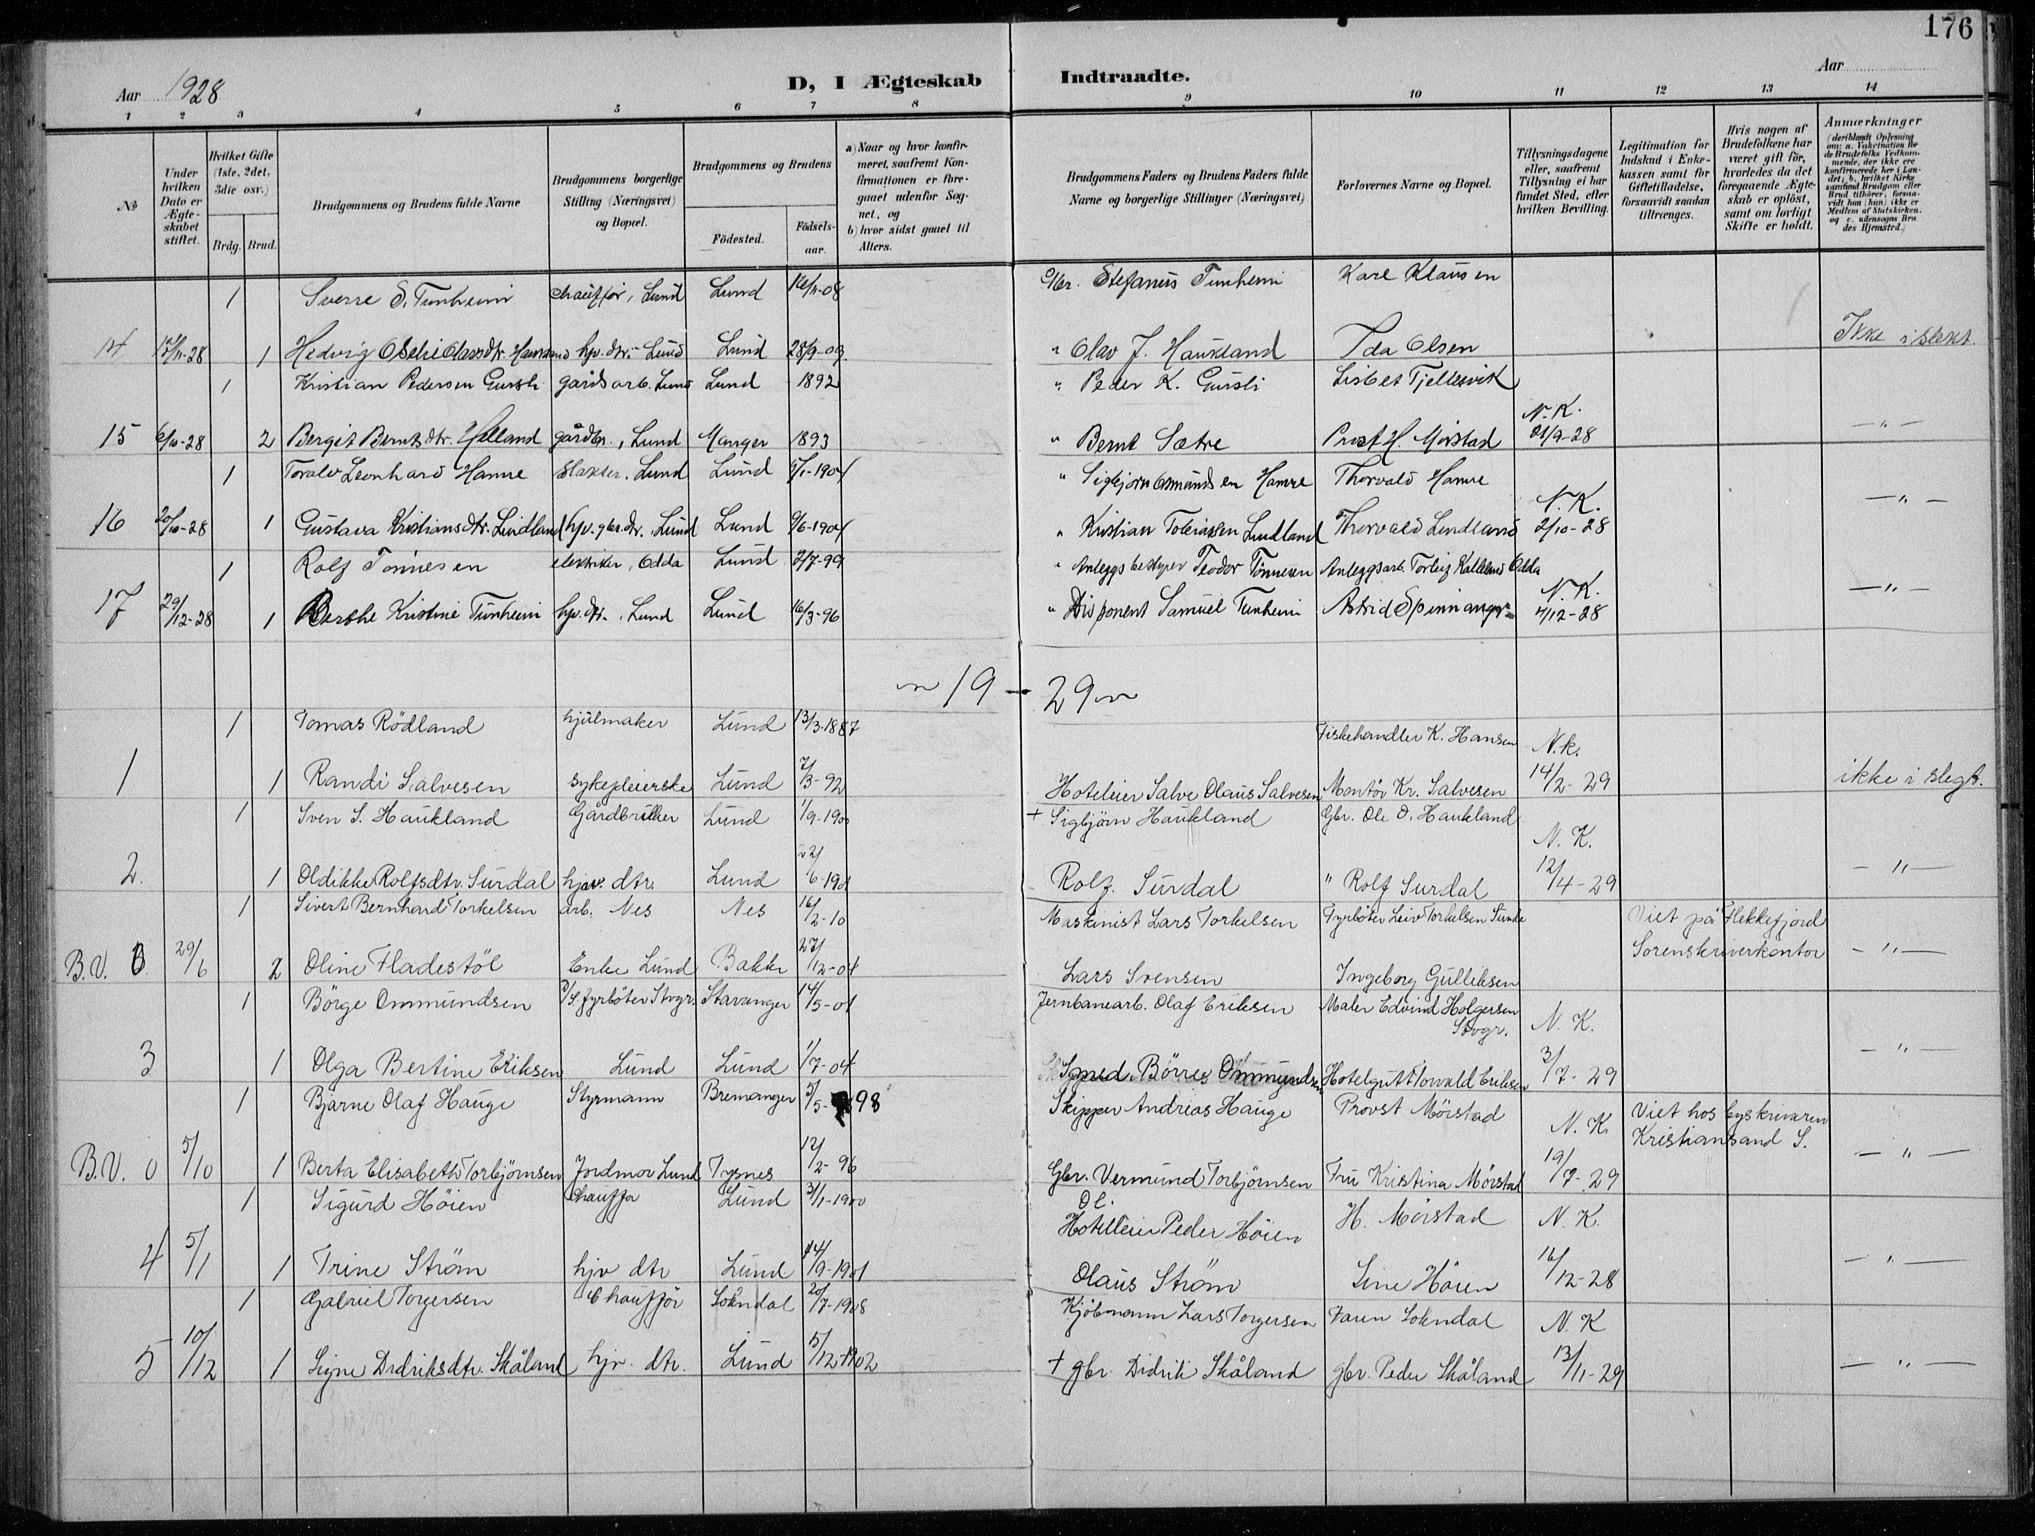 176
Aar 1928
D, I Ægteskab Indtraadte.
Aar
1 2 3 4 5 6 7 8 9 10 11 12 13 14
No
Under hvilken Dato er Ægteskabet stiftet.
Hvilket Gifte (1ste, 2det, 3die osv.)
Brdg. Brud.
Brudgommens og Brudens fulde Navne
Brudgommens borgerlige Stilling (Næringsvei) og Bopæl.
Brudgommens og Brudens
Fødested. Fødselsaar.
a) Naar og hvor konfirmeret, saafremt Konfirmationen er foregaaet udenfor Sognet, og
b) hvor sidst gaaet til Alters.
Brudgommens Faders og Brudens Faders fulde Navne og borgerlige Stillinger (Næringsvei)
Forlovernes Navne og Bopæl.
Tillysningsdagene eller, saafremt Tillysning ei har fundet Sted, efter hvilken Bevilling.
Legitimation for Indskud i Enkekassen samt for Giftetilladelse, forsaavidt saadan tiltrænges.
Hvis nogen af Brudefolkene har været gift før, hvorledes da det foregaaende Ægteskab er opløst, samt om lovligt Skifte er holdt.
Anmærkninger (deriblandt Oplysning om: a. Vakcination for de Brudefolks Vedkommende, der ikke ere konfirmerede her i Landet; b. hvilket Kirkesamfund Brudgom eller Brud tilhører, forsaavidt han (hun) ikke er Medlem af Statskirken, og c. udensogns Brudes Hjemsted.)
1 Sverre S. Tunheim chauffør, Lund Lund 16/11-08 Gbr. Stefanus Tunheim Karl Klausen
14 17/11-28 1 Hedvig Olavsdtr. Haukland hv. dtr. Lund Lund 28/9-09 " Olav J. Haukland Ida Olsen Ikke i slekt.
1 Kristian Pedersen Gursli gårdsarb. Lund Lund 1892 " Peder K. Gursli Lisbet Tjellesvik
15 6/10-28 2 Bergit Berntsdtr. Helland gårdbr., Lund Manger 1893 " Bernt Sætre Prost H. Mørstad N.K. 21/9-28 - " -
1 Toralv Leonhard Hamre slakter, Lund Lund 1/1-1904 " Sigbjørn Omundsen Hamre Thorvald Hamre
16 20/10-28 1 Gustava Kristiansdtr. Lindland hv. gbr.dtr., Lund Lund 9/6-1904 " Kristian Tobiassen Lindland Thorvald Lindland N.K. 2/10-28 - " -
1 Rolf Tønnesen elektriker, Odda Lund 2/7-99 " Anleggsbestyrer Teodor Tønnesen Anleggsarb. Torleiv Kalleland Odda
17 29/12-28 1 Berthe Kristine Tunheim hv. dtr., Lund Lund 16/3-96 " Disponent Samuel Tunheim Astrid Spinnanger N.K. 4/12-28 - " -
19 - 29
1 Tomas Rödland hjulmaker Lund 13/3-1887 Fiskehandler K. Hansen
1 1 Randi Salvesen sykepleierske Lund 7/3-92 Hoteleier Salve Olaus Salvesen Montör Kr. Salvesen N.K. 14/2-29 ikke i slegt.
1 Sven S. Haukland Gårdbruker Lund 1/9-1900 + Sigbjörn Haukland Gbr. Ole O. Haukland
2. 1 Oldikke Rolfsdtr. Surdal hjv. dtr. Lund 22/6-1901 Rolf Surdal " Rolf Surdal N.K. 12/4-29 - " -
1 Sivert Bernhard Torkelsen arb. Nes Nes 16/2-10 Maskinist Lars Torkelsen Fyrböter Leiv Torkelsen Sunde Viet på Flekkefjord
B.V. 0 29/6 2 Oline Fladestöl Enke Lund Bakke 27/12-04 Lars Svensen Ingeborg Gulliksen Sorenskriverkontor - " -
1 Börge Ommundsen fyrböter Stvgr. Stavanger 14/5-01 Jernbanearb. Olaf Eriksen Maler Edvind Holgersen Stvgr.
3 1 Olga Bertine Eriksen Lund Lund 1/7-04 Smed Börres Ommundsen Hotelgutt Torvald Eriksen N.K. 3/7-29 - " -
1 Bjarne Olaf Hauge Styrmann Bremanger 5/5-98 Skipper Andreas Hauge Provst Mörstad Viet hos byskriveren
B.V. 0 5/10 1 Berta Elisabeth Torbjörnsen Jordmor Lund Tysnes 12/2-96 Gbr. Vermund Torbjörnsen Fru Kristina Mörstad N.K. 19/7-29 Kristiansand S. - " -
1 Sigurd Höien Chauffør Lund 3/1-1900 Hotelleier Peder Höien H. Mörstad
4 5/1 1 Trine Ström hjv dtr Lund 14/9-1901 Olaus Ström Sine Höien N.K. 16/12-28 - " -
1 Gabriel Torgersen Chauffør Sokndal 20/7-1908 Kjöbmann Lars Torgersen Faren Sokndal
5 10/12 1 Signe Didriksdtr. Skåland hjv. dtr. Lund 5/12-1902 + gbr. Didrik Skåland gbr. Peder Skåland N.K 13/11-29 - " -